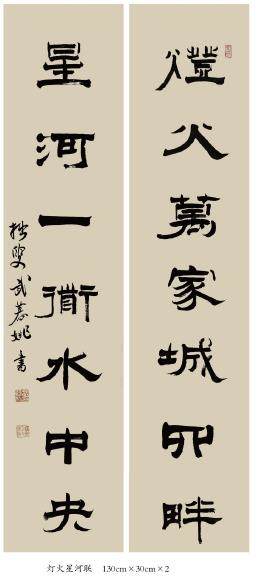 燈火萬家城四畔
星河一衜水中央
拙叟武慕姚書
灯火星河联 130cm×30cm×2